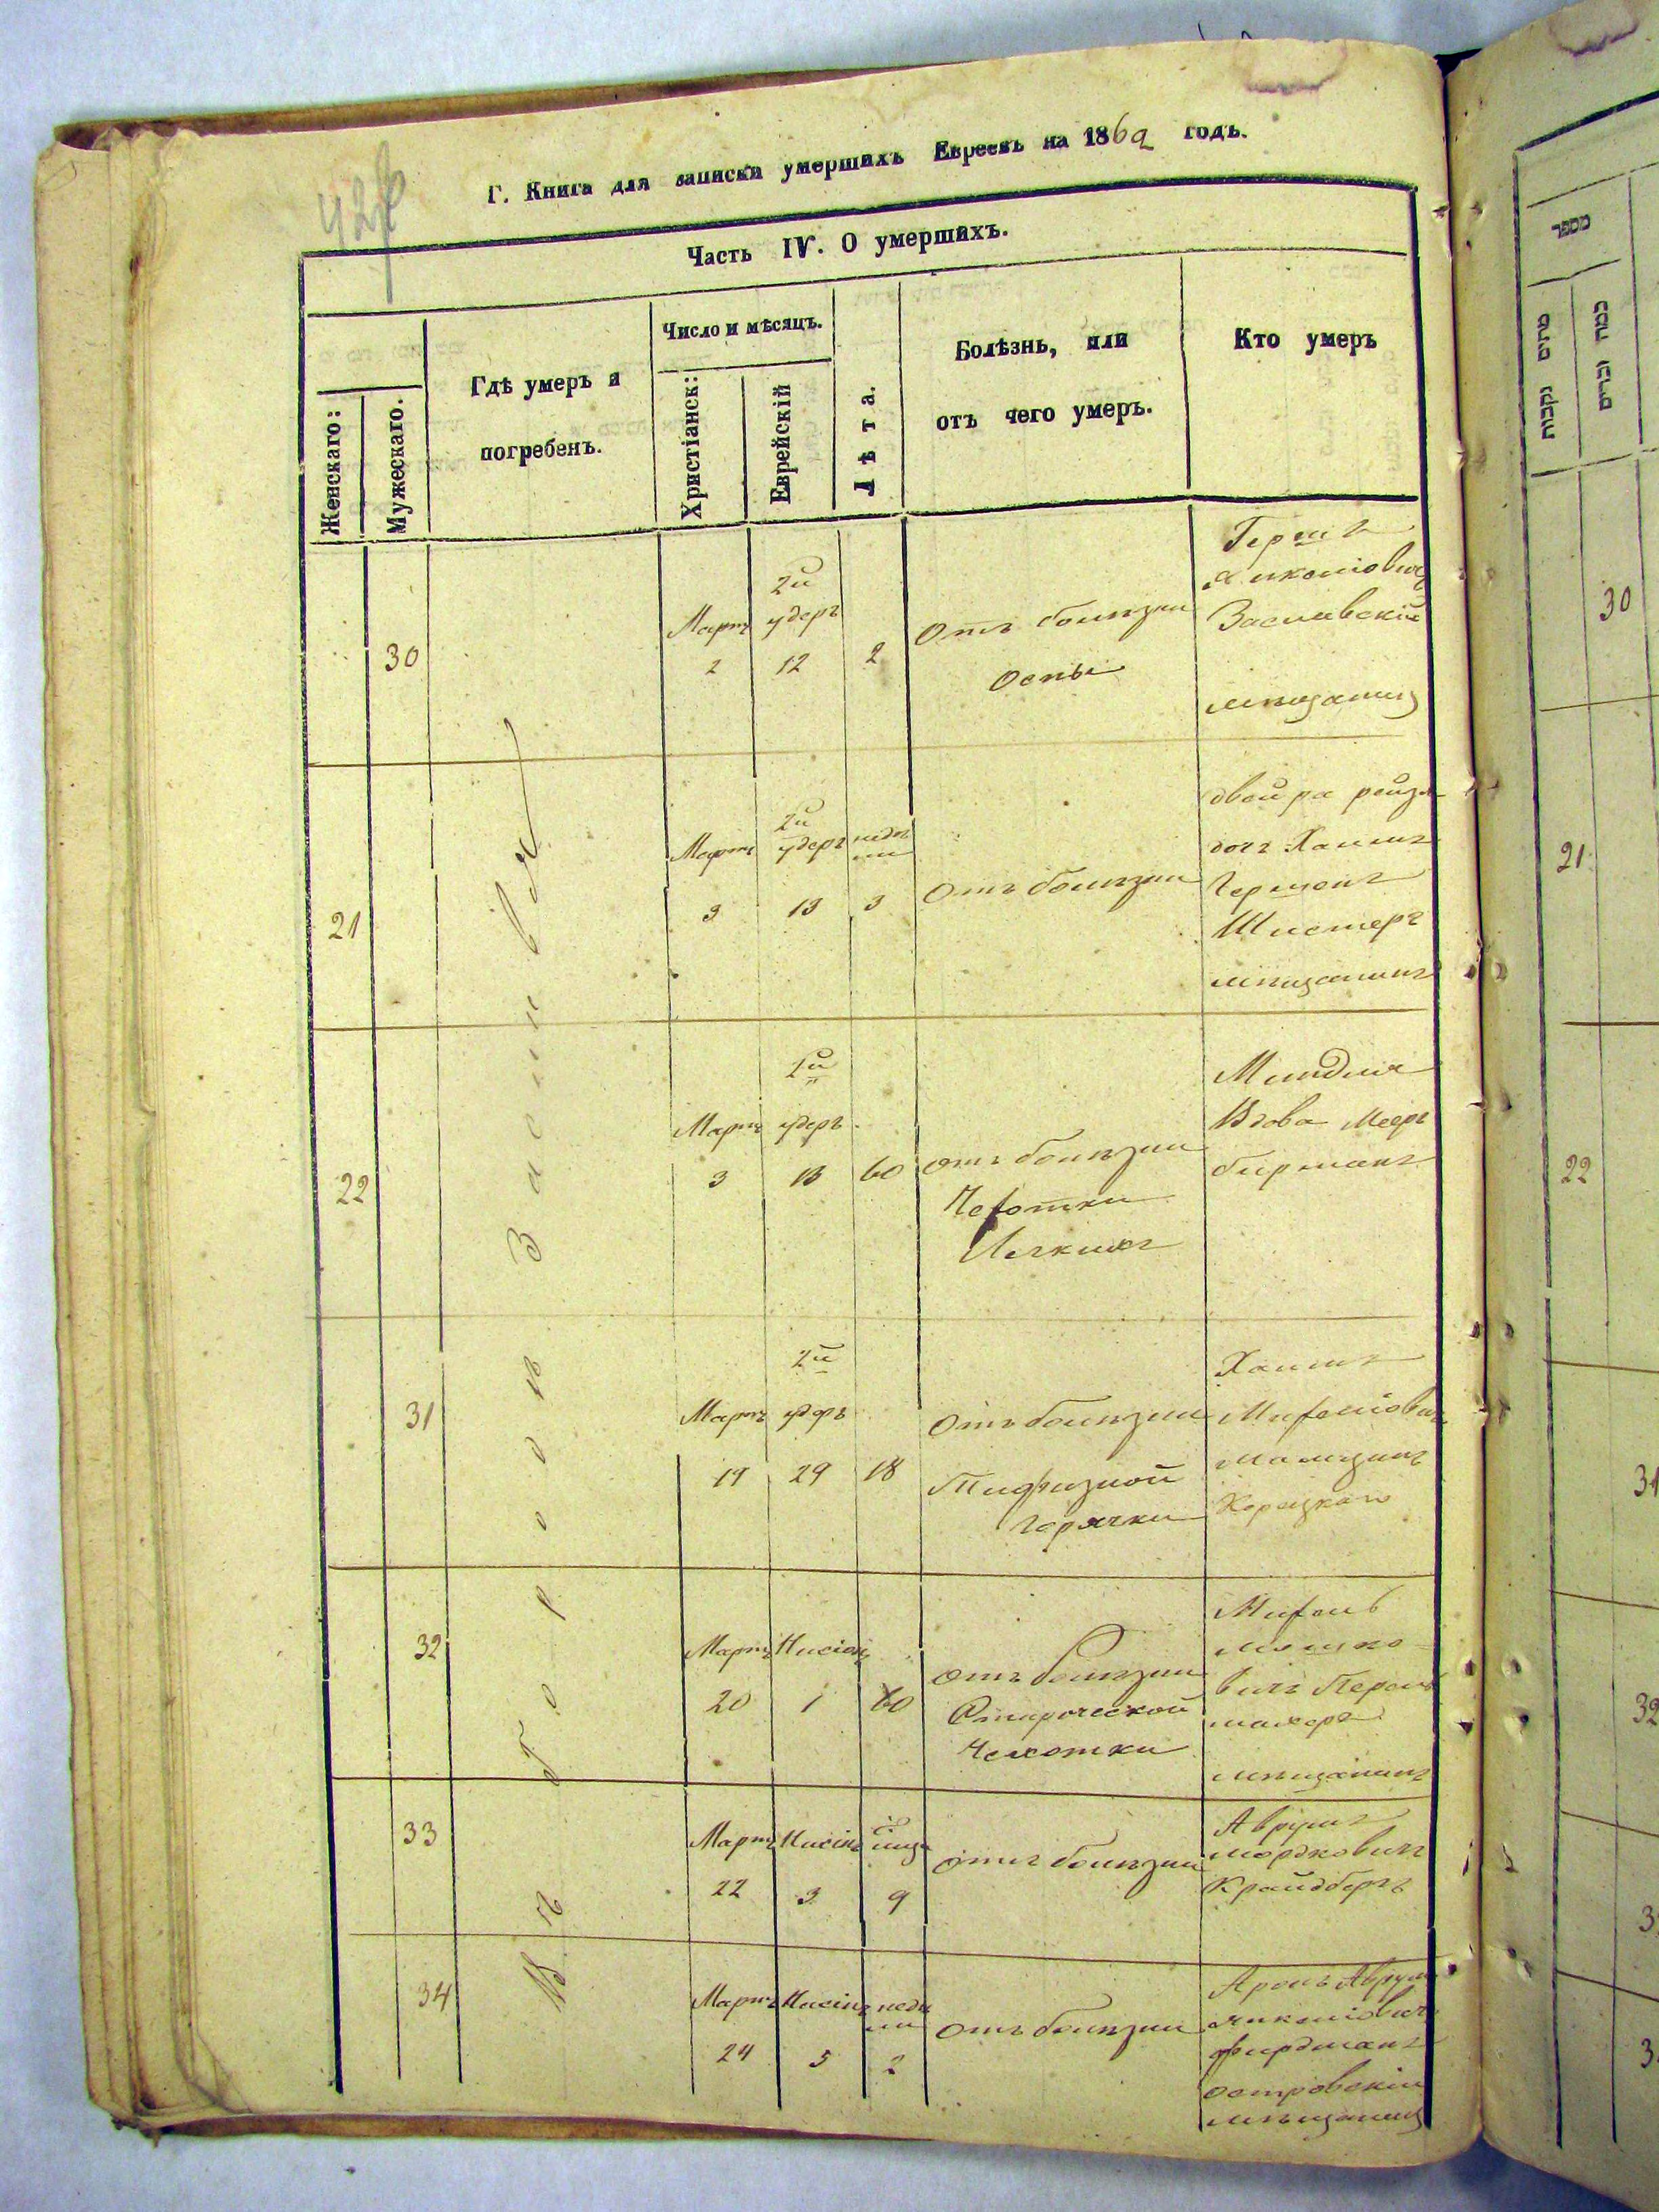 Г. Книга для записки умершихъ Евреевъ на 1862 годъ.
Часть IV. О умершихъ.
Женскаго:
Мужескаго.
Гдѣ умеръ и
погребенъ.
Число и мѣсяцъ.
Христіанск:
Еврейскій
Лѣта.
Болѣзнь, или
отъ чего умеръ.
Кто умеръ
Въ городѣ Заславлѣ
30
Мартъ
2
2й
удеръ
12
2
Отъ болѣзни
Оспы
Гершъ
Заславскій
мѣщанинъ
21
Мартъ
3
2й
удеръ
13
недѣ
ли
3
Отъ болѣзни
двойра рейзя
дочъ Хаимъ
Гершонъ
Шистеръ
мѣщанинъ
22
Мартъ
3
2й
удеръ
13
60
отъ болѣзни
Чехотки
Легкихъ
Миндля
Вдова Мееръ
бирманъ
31
Мартъ
19
2й
удеръ
29
18
Отъ болѣзни
Тифизной
горячки
Хаимъ
Корецкаго
32
Мартъ
20
Нисіонъ
1
60
отъ болѣзни
Старческой
Чехотки
Мошко-
вичъ Перель
махеръ
мѣщанинъ
33
Мартъ
22
Нисінъ
3
9
отъ болѣзни
Аврумъ
мордковичъ
Крайдберъ
34
Мартъ
24
Нисінъ
5
неде
ли
2
Отъ болѣзни
Аронъ Аврум
фирдманъ
островскій
мѣщанинъ
מספר
מתים נקבות
30
21
22